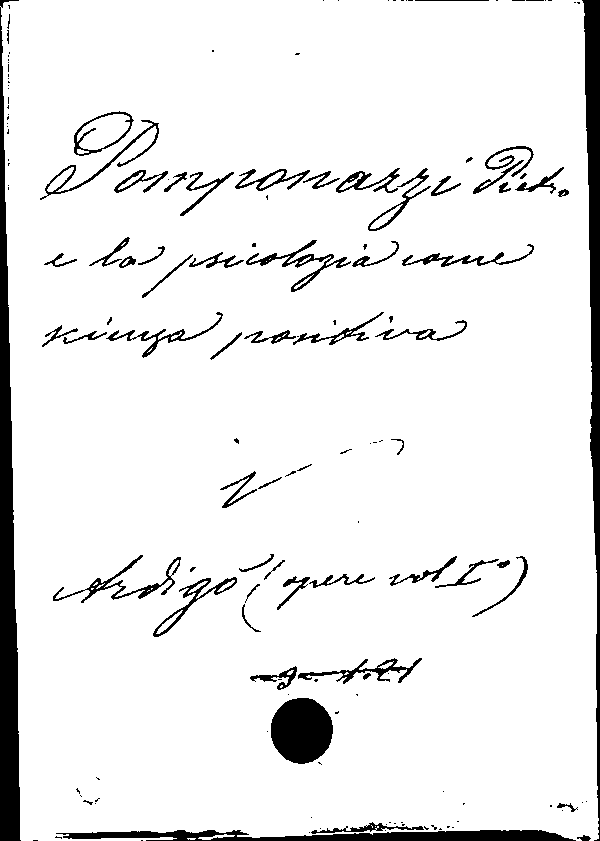 Pomponazzi Pietro
e la psicologia come
scienza positiva
V
Ardigò (opere vol I°)